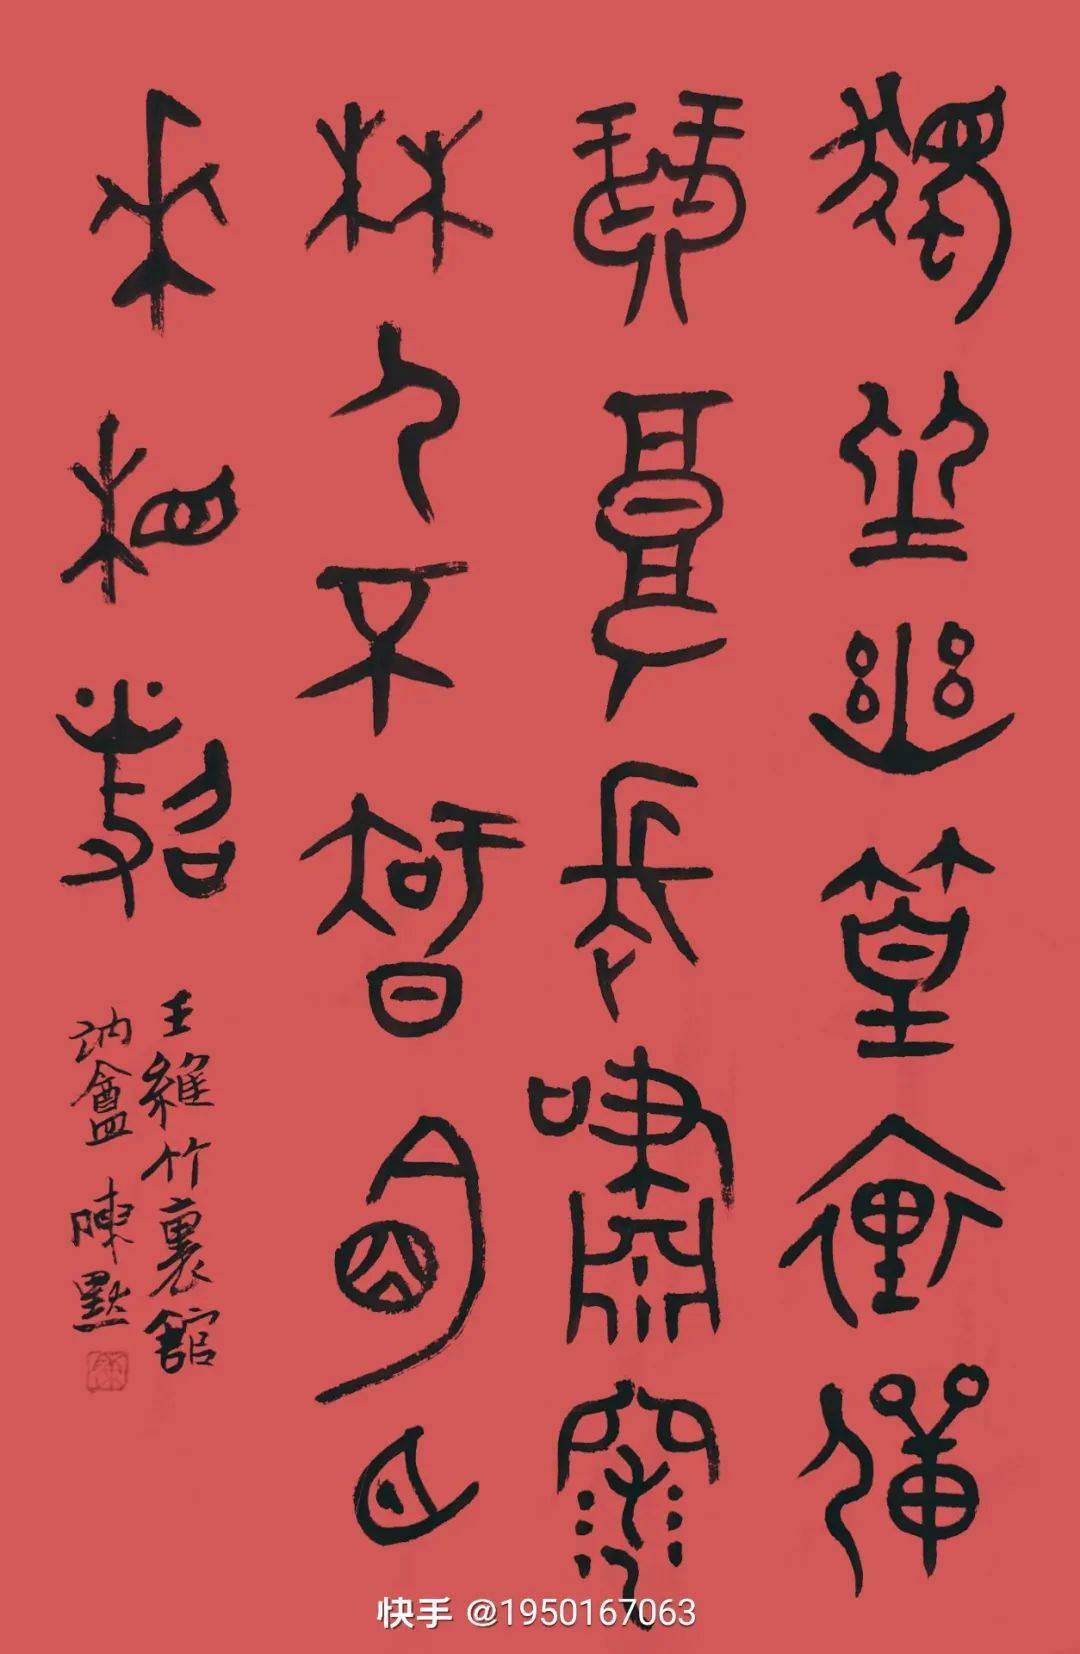 獨坐幽篁裏彈
琴復長嘯深
林人不智明月
來相照
王維竹裏館
訥盦 陳默
快手 @1950167063